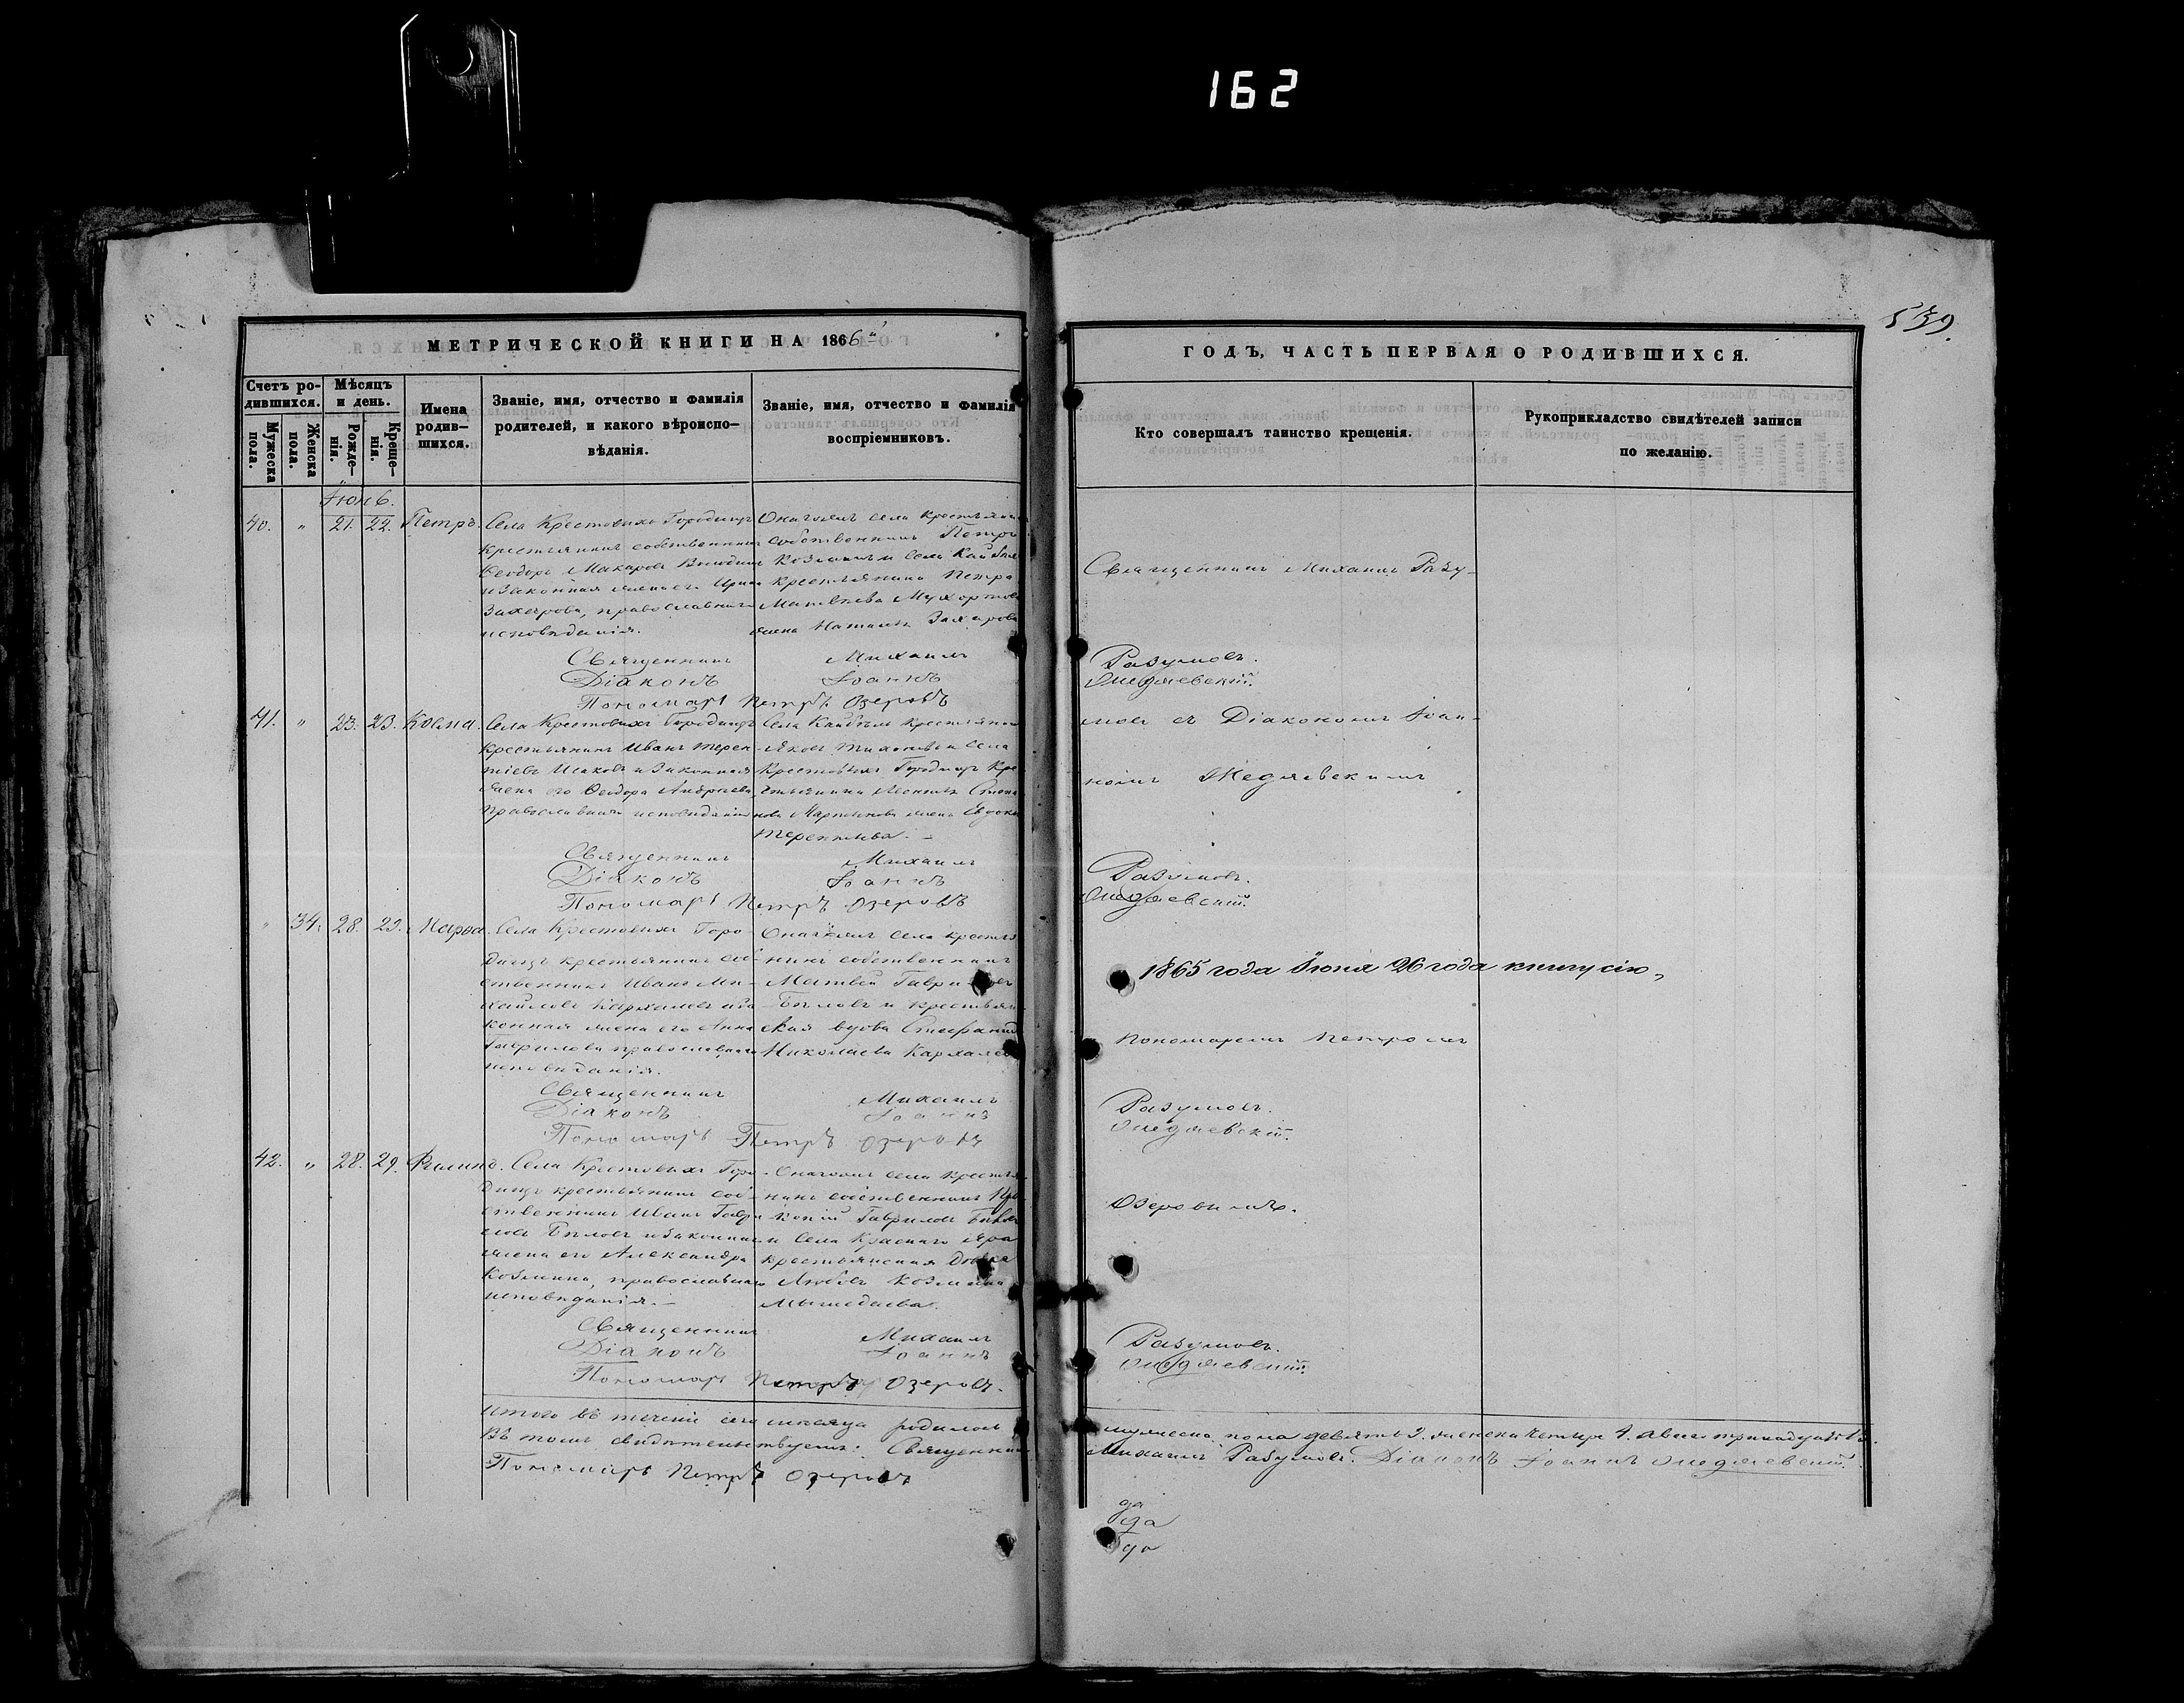 162
539.
МЕТРИЧЕСКОЙ КНИГИ НА 1866й
Счетъ ро-
дившихся.
Мужеска
пола.
Женска
пола.
Мѣсяцъ
и день.
Рожде-
нія.
Креще-
нія.
Имена
родив-
шихся.
Званіе, имя, отчество и фамилія
родителей, и какого вѣроиспо-
вѣданія.
Званіе, имя, отчество и фамилія
воспріемниковъ.
ГОДЪ, ЧАСТЬ ПЕРВАЯ О РОДИВШИХСЯ.
Кто совершалъ таинство крещенія.
Рукоприкладство свидѣтелей записи
по желанію.
Іюнь.
40. " 21. 22. Петръ.
Села Крестовыхъ Городищъ
крестьянинъ собственникъ
Ѳеодоръ Макаровъ
и законная жена его Ирина
Захарова, православнаго
исповѣданія.
Означенъ села крестьянинъ
собственникъ Петръ
Козминъ и села Кайбелъ
крестьянина Петра
Матвѣева
жена Наталья Захарова
Священникъ Михаилъ Разу-
Священникъ Михаилъ Разумовъ.
Діаконъ Іоаннъ
Пономарь Петръ Озеровъ
41. " 23. 23. Косма.
Села Крестовыхъ Городищъ
крестьянинъ Иванъ Терен-
тіевъ Исаковъ и законная
жена его Ѳеодора Андреева,
православнаго исповѣданія
Села Кайбелъ крестьянинъ
Яковъ Тихоновъ и села
Крестовыхъ Городищъ кре
стьянина Леонтія
Мартынова жена Евдокія
Терентьева.
мовъ съ Діакономъ Іоан-
номъ
Священникъ Михаилъ Разумовъ.
Діаконъ Іоаннъ
Пономарь Петръ Озеровъ
" 34. 28. 29. Марѳа.
Села Крестовыхъ Горо-
дищъ крестьянинъ соб-
ственникъ Иванъ Ми-
хайловъ Кархалевъ и за-
конная жена его Анна
Гаврилова православнаго
исповѣданія.
Означенъ села крестья
нинъ собственникъ
Матвей Гавриловъ
Бѣловъ и крестьян-
ская вдова Стефанида
Николаева Кархалева
1865 года Іюня 26 года книгу сію,
Пономаремъ Петромъ
Священникъ Михаилъ Разумовъ.
Діаконъ Іоаннъ
Пономарь Петръ Озеровъ
42. " 28. 29. Филипъ.
Села Крестовыхъ Горо-
дищъ крестьянинъ соб-
ственникъ Иванъ Гаври
ловъ Бѣловъ и законная
жена его Александра
Козмина, православнаго
исповѣданія.
Означенъ села крестья
нинъ собственникъ Про
копій Гавриловъ Бѣловъ
и села Краснаго Яра
крестьянская дочь
Любовь Козмина
Озеровымъ.
Священникъ Михаилъ Разумовъ.
Діаконъ Іоаннъ
Пономарь Петръ Озеровъ.
Итого въ теченіи сего мѣсяца родилось мужеска пола девять 9. женска четыре 4. обоего тринадцать 13.
Въ томъ свидѣтельствуемъ: Священникъ Михаилъ Разумовъ. Діаконъ Іоаннъ
Пономарь Петръ Озеровъ
да
да